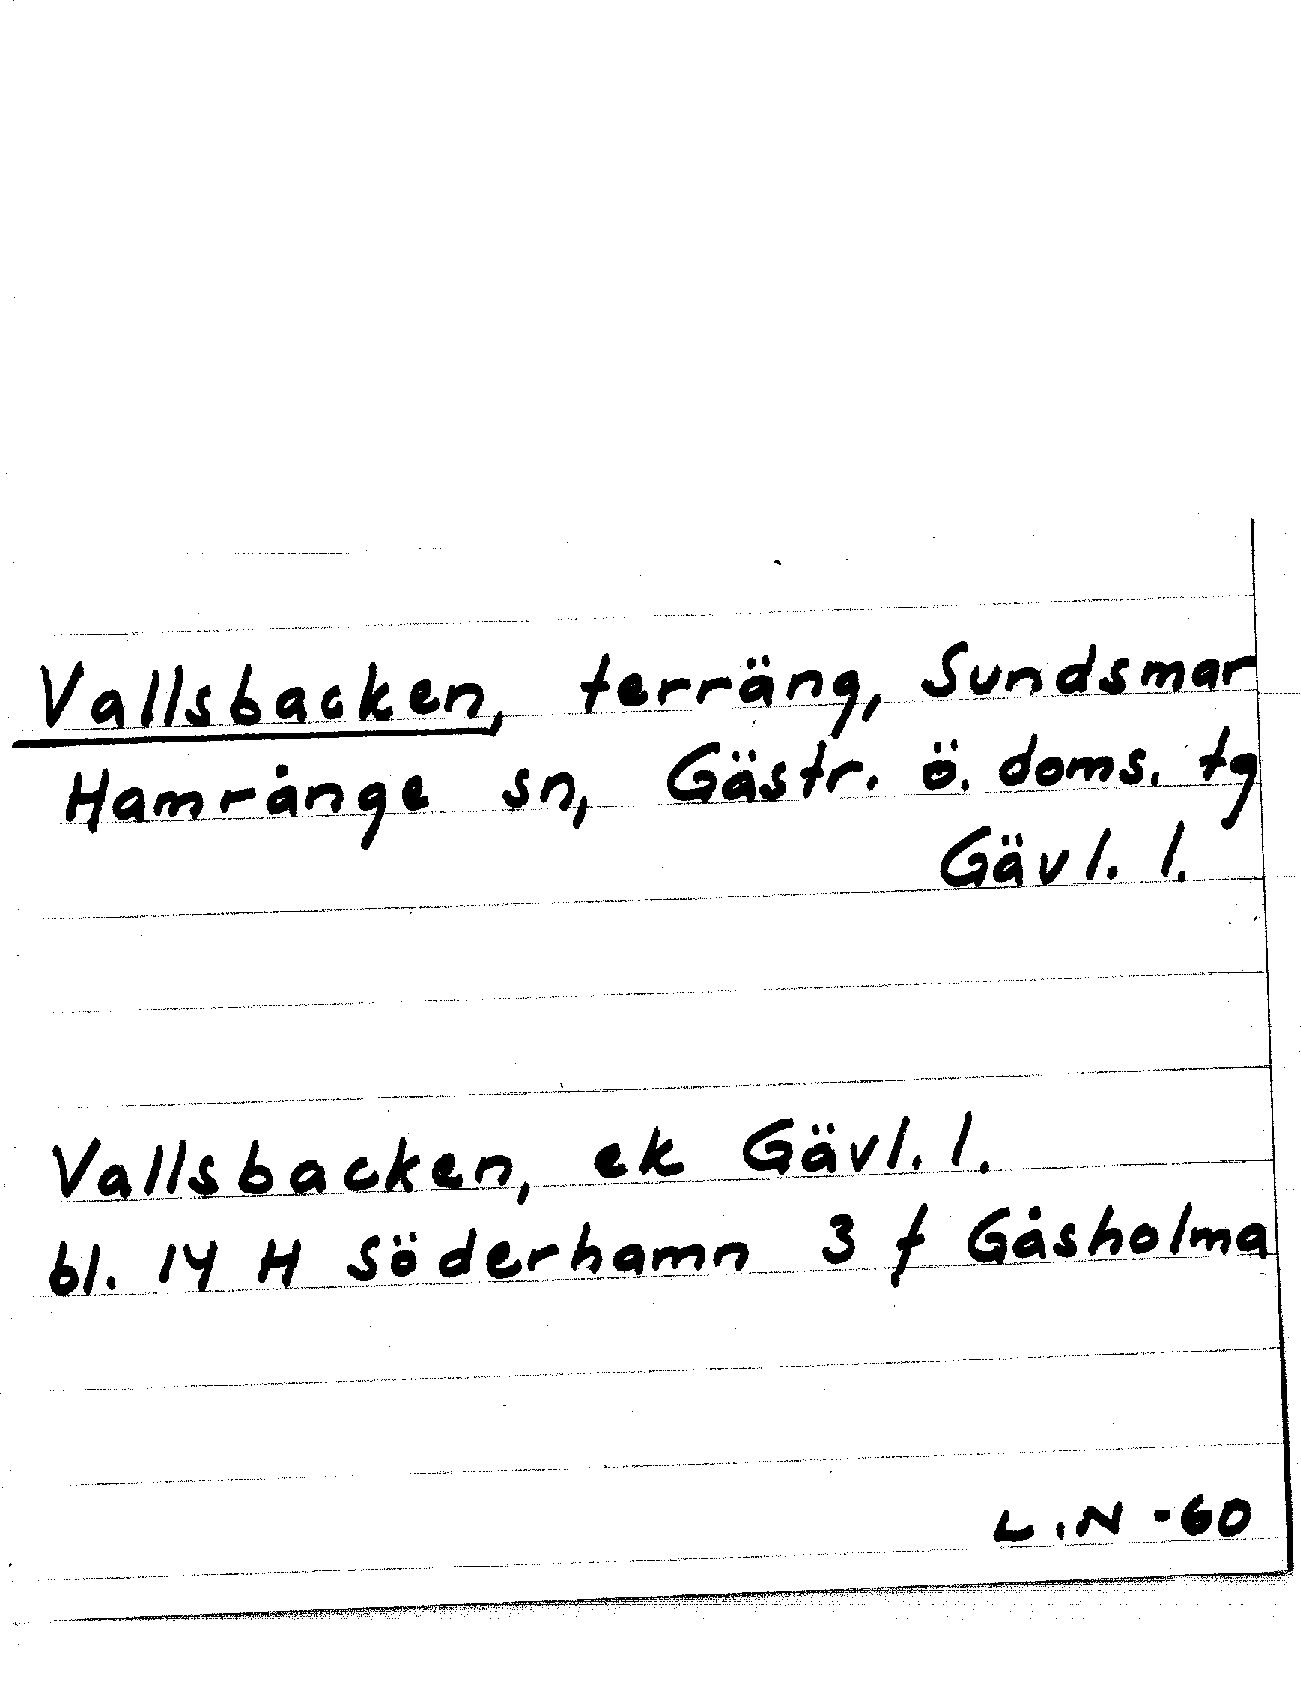 Vallsbacken, terräng, Sundsmar
Hamrånge sn, Gästr. ö. doms. tg
Gävl. l.
Vallsbacken, ek Gävl. l.
bl. 14 H Söderhamn 3 f Gåsholma
L.N -60